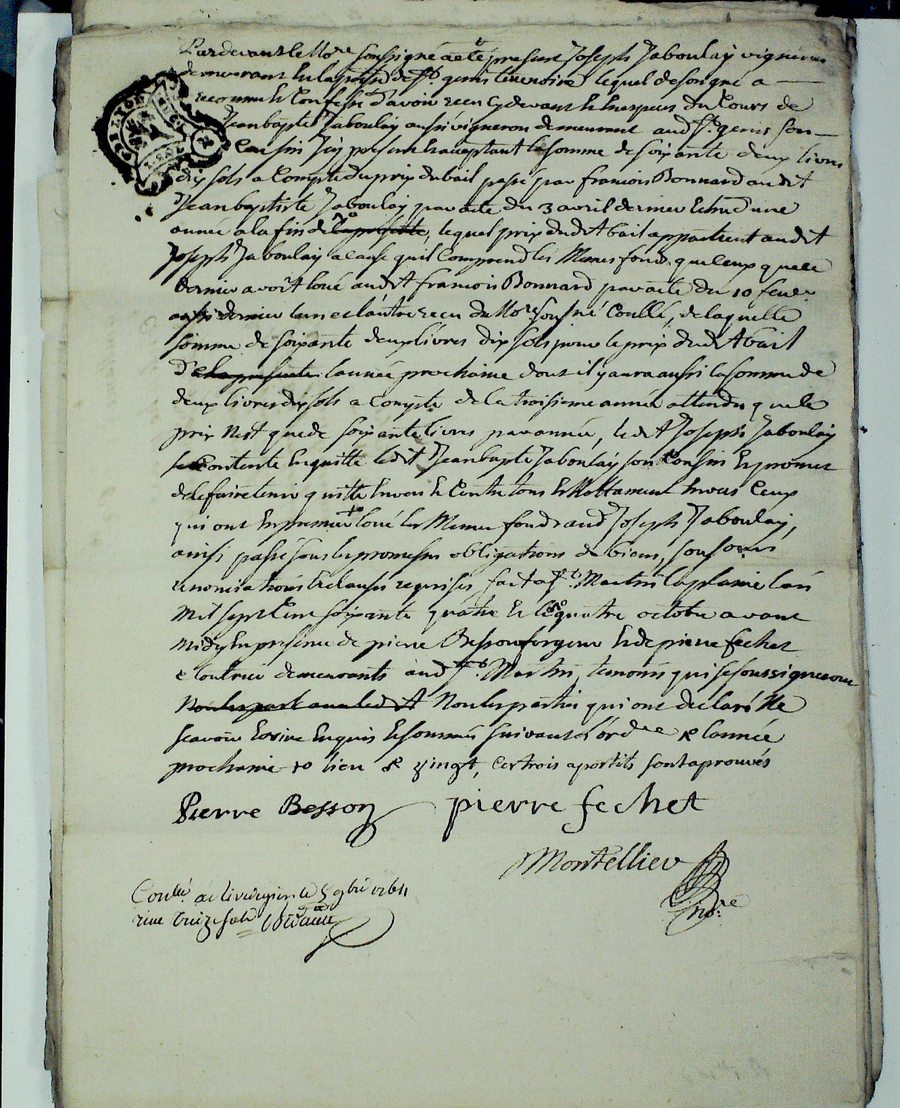 Pardevant le No.re soussigné a eté present Joseph Jaboulay vigneron
demeurant en la paroisse de st genis terrenoire lequel de son gré a
reconnu et confessé d'avoir recu cy devant et en especes du cours de
Jean bapte Jaboulay aussi vigneron demeurant aud st genis son
Cousin icy present et acceptant la somme de soixante deux livres
dix sols a compte du prix du bail passé par francois Bonnard audit
Jean baptiste Jaboulay par acte du 3 avril dernier
année a la fin de la presente, lequel prix dudit bail appartient audit
Joseph Jaboulay a cause qu'il comprend les memes fonds que
dernier avoit loué audit francois Bonnard par acte du 10 feur.
aussi dernier l'un et l'autre recu du No.re sousné Coullé, de laquelle
somme de soixante deux livres dix sols pour le prix dudit bail
de la presente l'année prochaine dont il y aura aussi la somme de
deux livres dix sols a compte de la troisieme année attendu que le
prix n'est que de soixante livres par année, ledit Joseph Jaboulay
se contente en quitte ledit Jean bapte Jaboulay son Cousin et promet
de le faire tenir quitte envers et contre tous et Nottament envers ceux
qui ont en premier loué les memes fonds aud Joseph Jaboulay,
ainsi passé sous les promesses obligations de biens, sousions
renonciations et clauses requises fait a st Martin la plaine l'an
mil sept cent soixante quatre et le quatre octobre avant
midy en presence de pierre Besson forgeur et de pierre fechet
demeurants aud st Martin, temoins qui se sont signe
Non les part avec ledit Non les parties qui ont declaré ne
scavoir ecrire enquis et sommés suivant l'ordre & l'année
prochaine 10 lieu & vingt, ces trois apostils sont aprouvés
Pierre Besson pierre fechet
Montellier
no.re
Coulé a rivedegier le 5 8bre 1764
recu treize sols